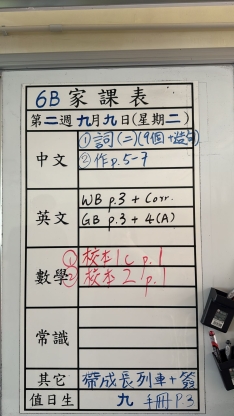 6B 家課表
第二週九月九日(星期二)
中文
①詞(二)(9個+造句)
②作p.5-7
英文
WB p.3 + Corr.
GB p.3 + 4(A)
數學
①校本1C p.1
②校本2 p.1
常識
其它 帶成長列車+簽
值日生 九 手冊P.3